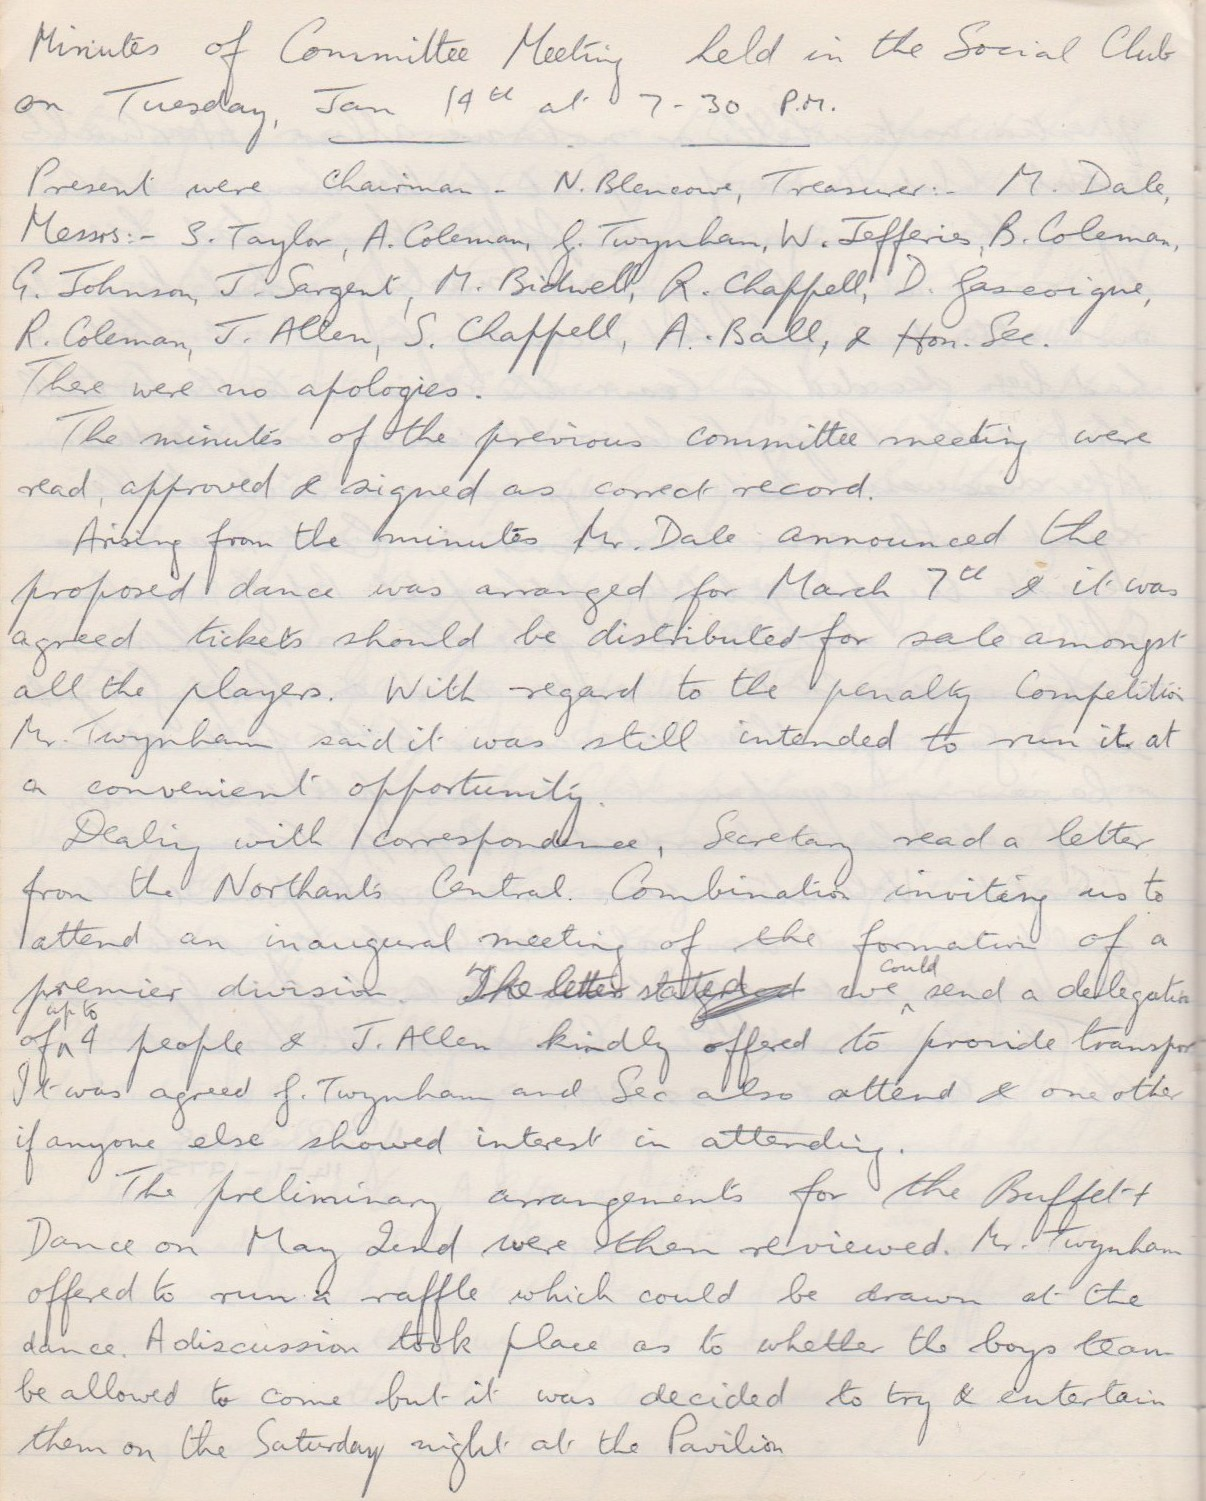 Minutes of Committee Meeting held in the Social Club
on Tuesday, Jan 14th at 7-30 P.M.
Present were Chairman - N. Blencowe, Treasurer:- M. Dale,
Messrs:- S. Taylor, A. Coleman, J. Twynham, W. Jefferies, B. Coleman,
G. Johnson, J. Sargent, M. Bidwell, R. Chappell, D. Gascoigne,
R. Coleman, J. Allen, S. Chappell, A. Ball, & Hon. Sec.
There were no apologies.
The minutes of the previous committee meeting were
read, approved & signed as correct record.
Arising from the minutes Mr. Dale announced the
proposed dance was arranged for March 7th & it was
agreed tickets should be distributed for sale amongst
all the players. With regard to the penalty competition
Mr. Twynham said it was still intended to run it at
a convenient opportunity.
Dealing with correspondence, Secretary read a letter
from the Northants Central. Combination inviting us to
attend an inaugural meeting of the formation of a
premier division. The letter stated we could send a delegation
of up to 4 people & J. Allen kindly offered to provide transpor
It was agreed J. Twynham and Sec also attend & one other
if anyone else showed interest in attending.
The preliminary arrangements for the Buffet +
Dance on May 2nd were then reviewed. Mr. Twynham
offered to run a raffle which could be drawn at the
dance. A discussion took place as to whether the boys team
be allowed to come but it was decided to try & entertain
them on the Saturday night at the Pavilion